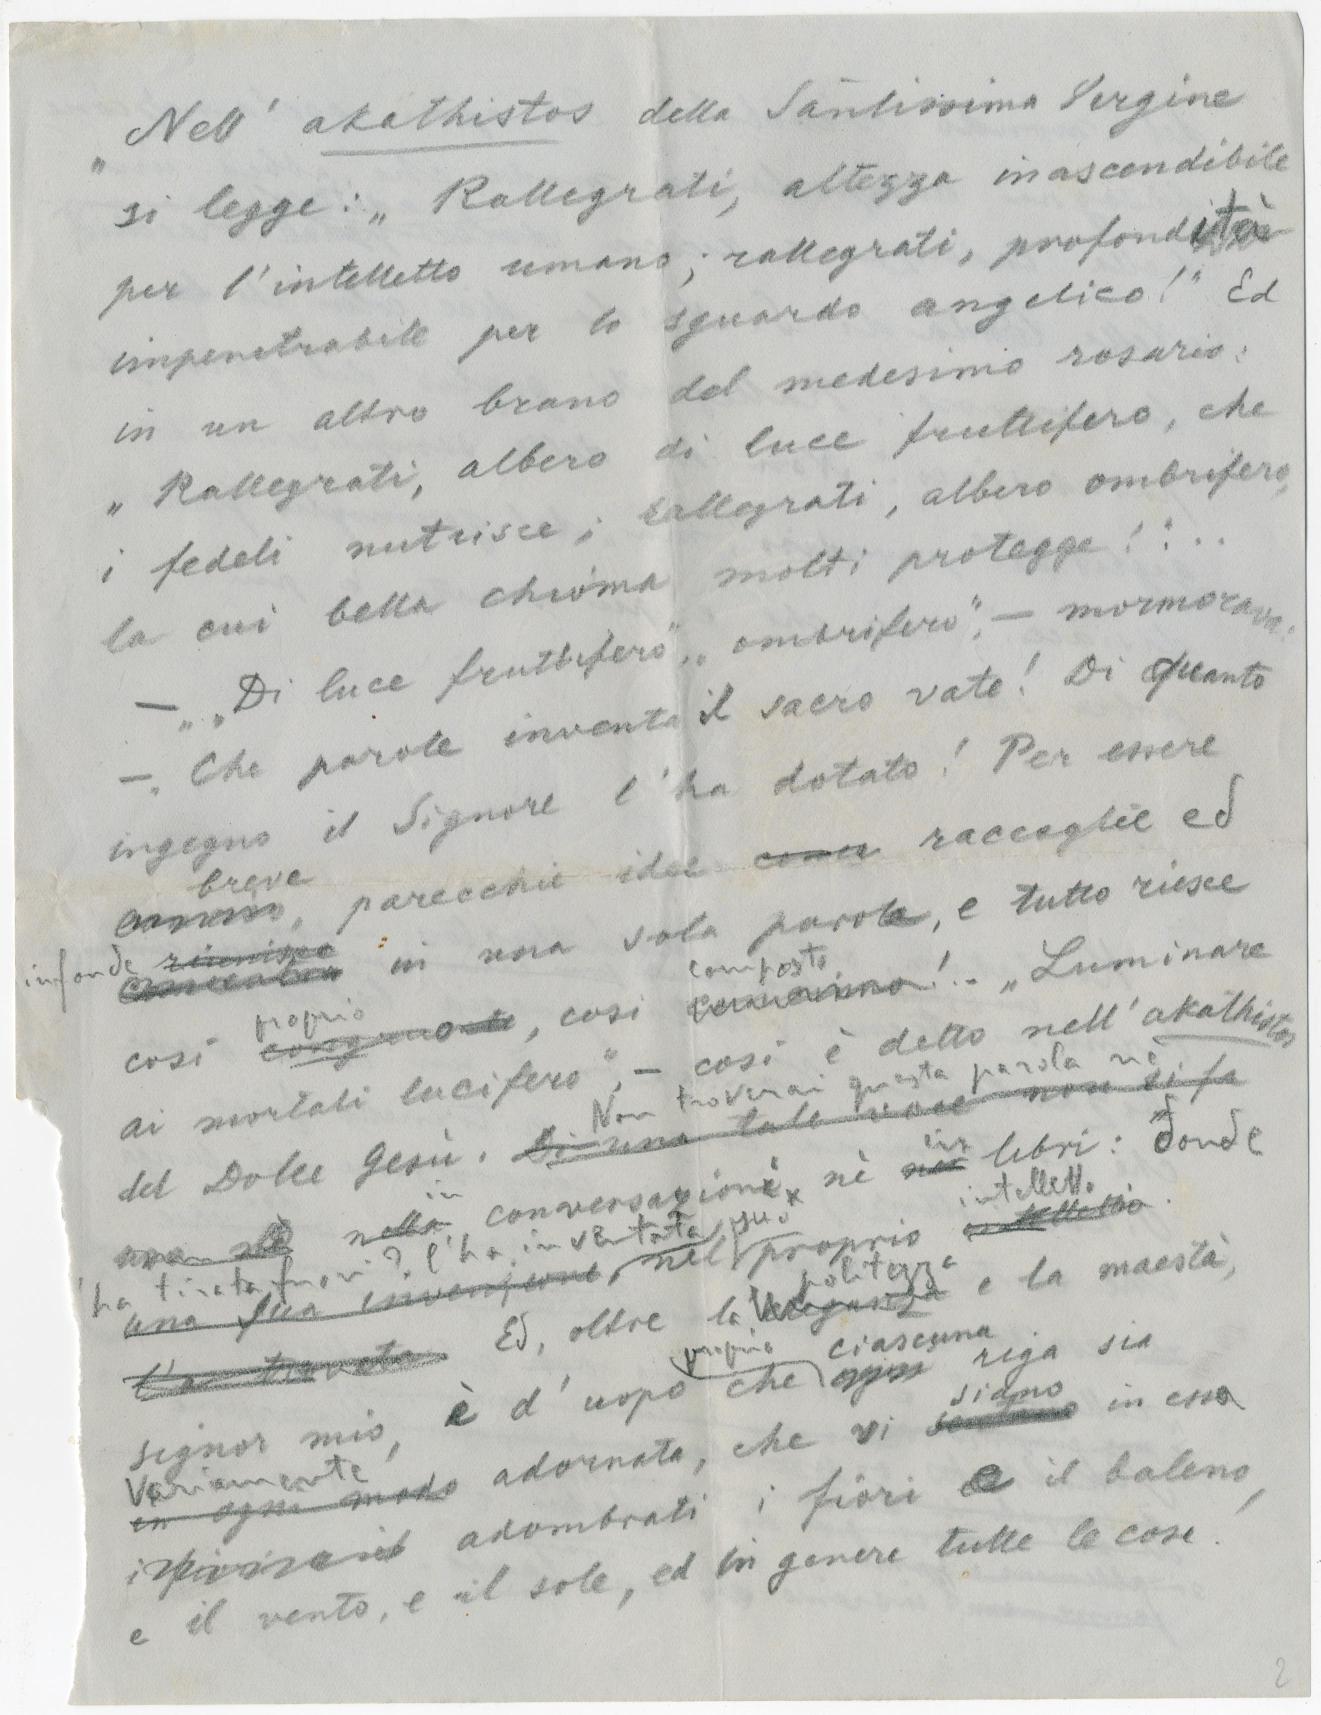 „Nell' akathistos della Santissima Vergine
si legge: „Rallegrati, altezza inascendibile
per l'intelletto umano; rallegrati, profondità
impenetrabile per lo sguardo angelico!" Ed
in un altro brano del medesimo rosario:
„Rallegrati, albero di luce fruttifero, che
i fedeli nutrisce; rallegrati, albero ombrifero,
la cui bella chioma molti protegge!"...
— „„Di luce fruttifero", „ombrifero", — mormorava.
— „Che parole inventa il sacro vate! Di quanto
ingegno il Signore l'ha dotato! Per essere
breve
, parecchie idee come raccoglie ed
infonde riunisce in una sola parola, e tutto riesce
proprio composto
così congruente, così !.. „Luminare
ai mortali lucifero", — così è detto nell'akathistos
Non troverai questa parola nè
del Dolce Gesù. Di una tale voce non si fa
in in
nella conversazione, nè nei libri: donde
l'ha tirata fuori? l'ha inventata suo intelletto
una sua invenzione, nel proprio intelletto.
politezza
l'ha trovata Ed, oltre la eleganza e la maestà,
proprio ciascuna
signor mio, è d'uopo che ogni riga sia
Variamente siano
in ogni modo adornata, che vi in essa
adombrati i fiori e il baleno,
e il vento, e il sole, ed in genere tutte le cose!
2